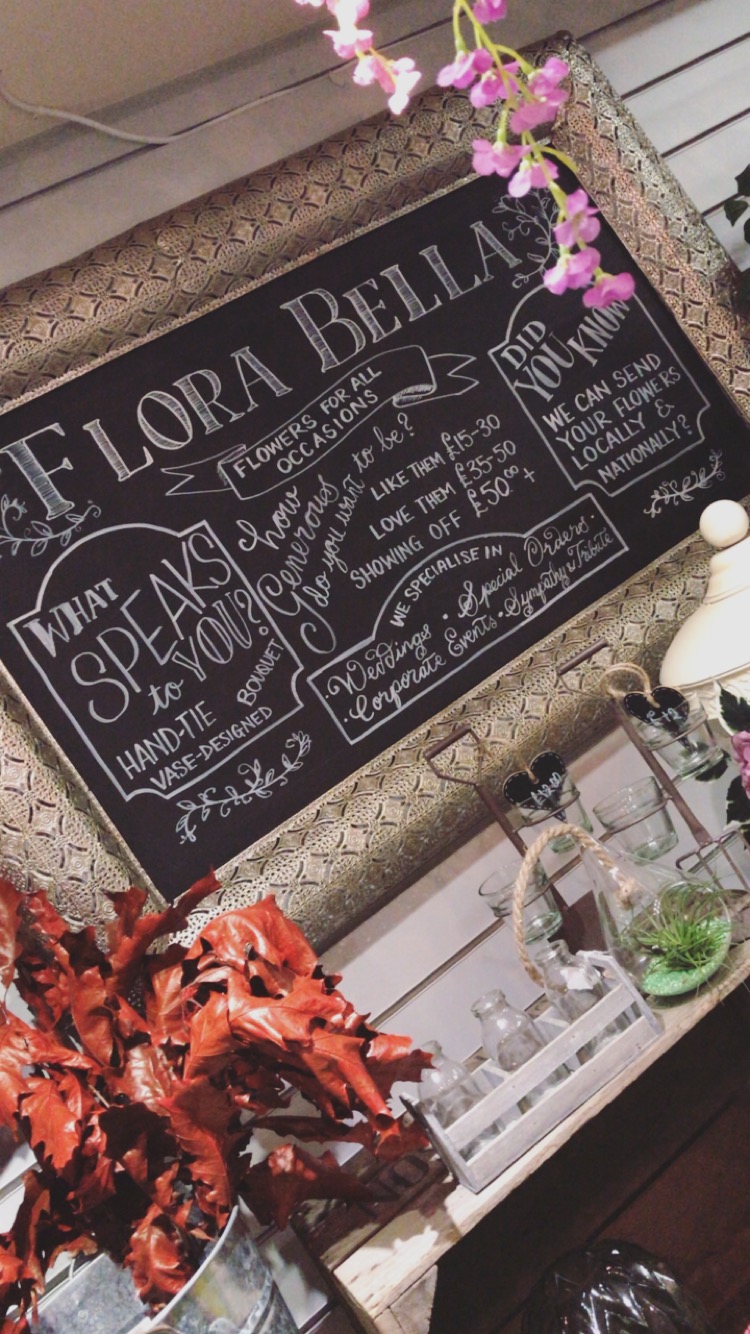 FLORA BELLA
FLOWERS FOR ALL
OCCASIONS
WHAT
SPEAKS
to YOU?
HAND-TIE BOUQUET
VASE-DESIGNED
how
Generous
do you want to be?
LIKE THEM £15-30
LOVE THEM £35-50
SHOWING OFF £50.00+
WE SPECIALISE IN
· Weddings · Special Orders ·
· Corporate Events · Sympathy & Tribute
DID
YOU KNOW
WE CAN SEND
YOUR FLOWERS
LOCALLY &
NATIONALLY?
NO